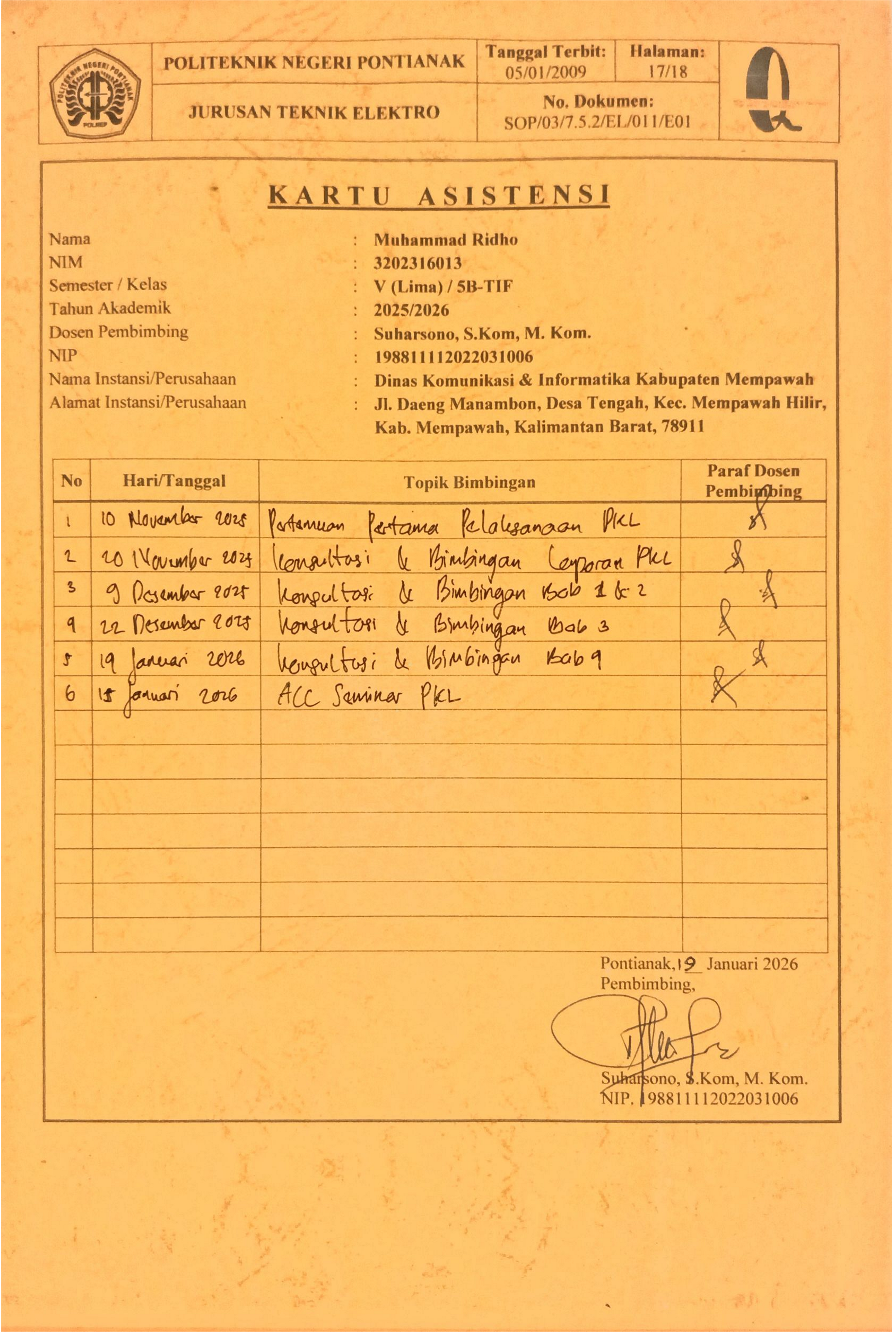 POLITEKNIK NEGERI PONTIANAK
POLNEP
POLITEKNIK NEGERI PONTIANAK
JURUSAN TEKNIK ELEKTRO
Tanggal Terbit:
05/01/2009
Halaman:
17/18
No. Dokumen:
SOP/03/7.5.2/EL/011/E01
KARTU ASISTENSI
Nama : Muhammad Ridho
NIM : 3202316013
Semester / Kelas : V (Lima) / 5B-TIF
Tahun Akademik : 2025/2026
Dosen Pembimbing : Suharsono, S.Kom, M. Kom.
NIP : 198811112022031006
Nama Instansi/Perusahaan : Dinas Komunikasi & Informatika Kabupaten Mempawah
Alamat Instansi/Perusahaan : Jl. Daeng Manambon, Desa Tengah, Kec. Mempawah Hilir,
Kab. Mempawah, Kalimantan Barat, 78911
No Hari/Tanggal Topik Bimbingan Paraf Dosen Pembimbing
1 10 November 2025 Pertemuan Pertama Pelaksanaan PKL
2 20 November 2025 Konsultasi & Bimbingan Laporan PKL
3 9 Desember 2025 Konsultasi & Bimbingan Bab 1 & 2
4 22 Desember 2025 Konsultasi & Bimbingan Bab 3
5 14 Januari 2026 Konsultasi & Bimbingan Bab 4
6 15 Januari 2026 ACC Seminar PKL
Pontianak, 19 Januari 2026
Pembimbing,
Suharsono, S.Kom, M. Kom.
NIP. 198811112022031006